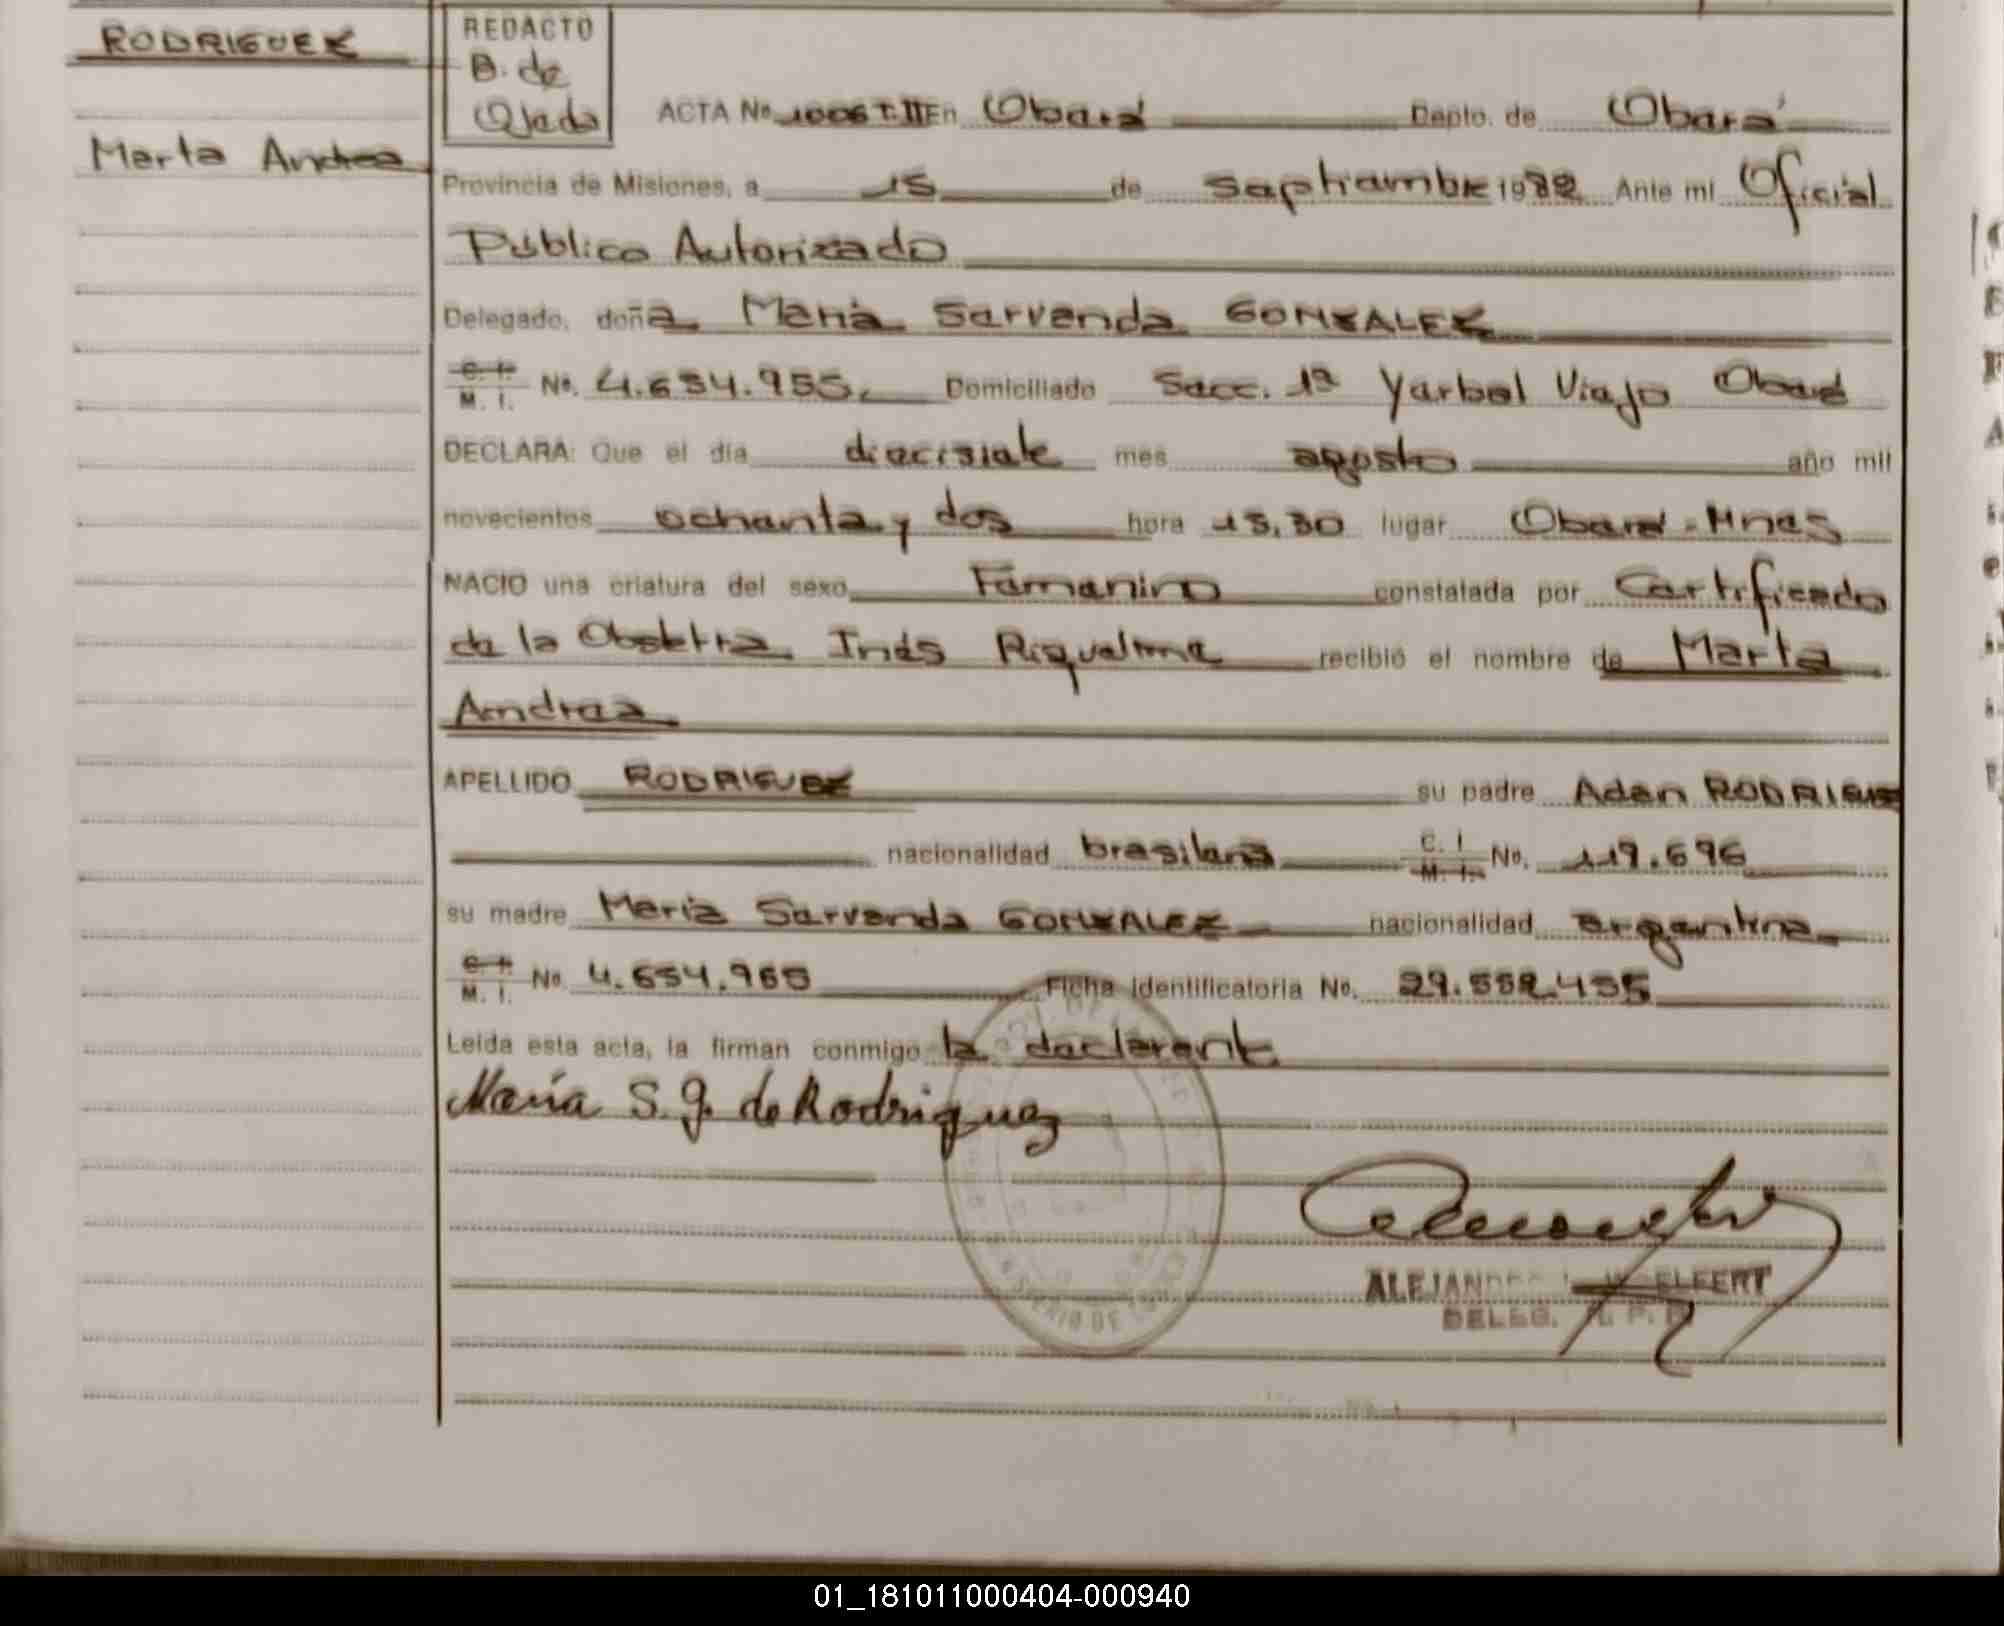 RODRIGUEZ
Marta Andrea
REDACTO
B. de
Ojeda
ACTA No. 1006 T. II En Oberá Depto. de Oberá
Provincia de Misiones, a 15 de septiembre 1982 Ante mi Oficial
Público Autorizado
Delegado, doña María Servanda GONZALEZ
C. I. M. I. No. 4.634.955. Domiciliado Secc. 1ª Yerbal Viejo Oberá
DECLARA: Que el día diecisiete mes agosto año mil
novecientos ochenta y dos hora 13,30 lugar Oberá - Mnes
NACIO una criatura del sexo Femenino constatada por Certificado
de la Obstetra Inés Riquelme recibió el nombre de Marta
Andrea
APELLIDO RODRIGUEZ su padre Adan RODRIGUEZ
nacionalidad brasilera C. I. M. I. No. 119.696
su madre María Servanda GONZALEZ nacionalidad argentina
C. I. M. I. No. 4.634.955 Ficha Identificatoria No. 29.552.435
Leida esta acta, la firman conmigo la declarante
María S. G. de Rodriguez
DELEG.
01_181011000404-000940